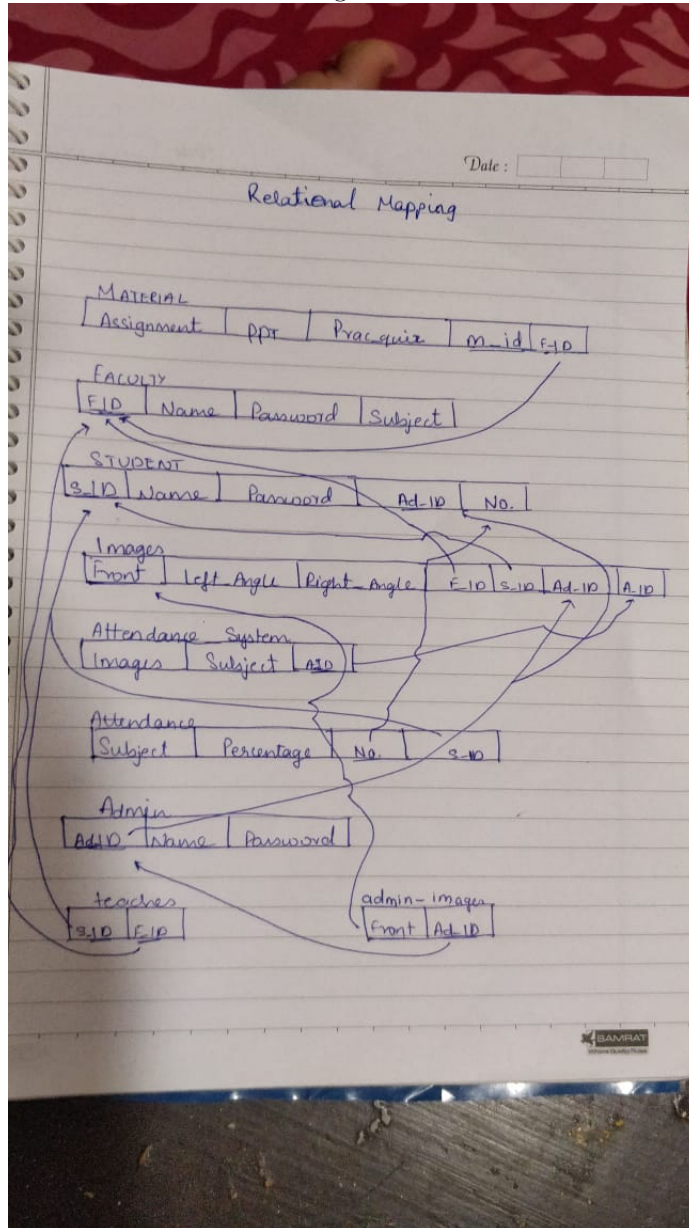 Date :
Relational Mapping
MATERIAL
Assignment PPT Prac_quiz m_id F_ID
FACULTY
F_ID Name Password Subject
STUDENT
S_ID Name Password Ad_ID No.
Images
Front Left_Angle Right_Angle F_ID S_ID Ad_ID A_ID
Attendance_System
Images Subject AID
Attendance
Subject Percentage No. S_ID
Admin
Ad_ID Name Password
teaches admin-images
S_ID F_ID Front Ad_ID
SAMRAT